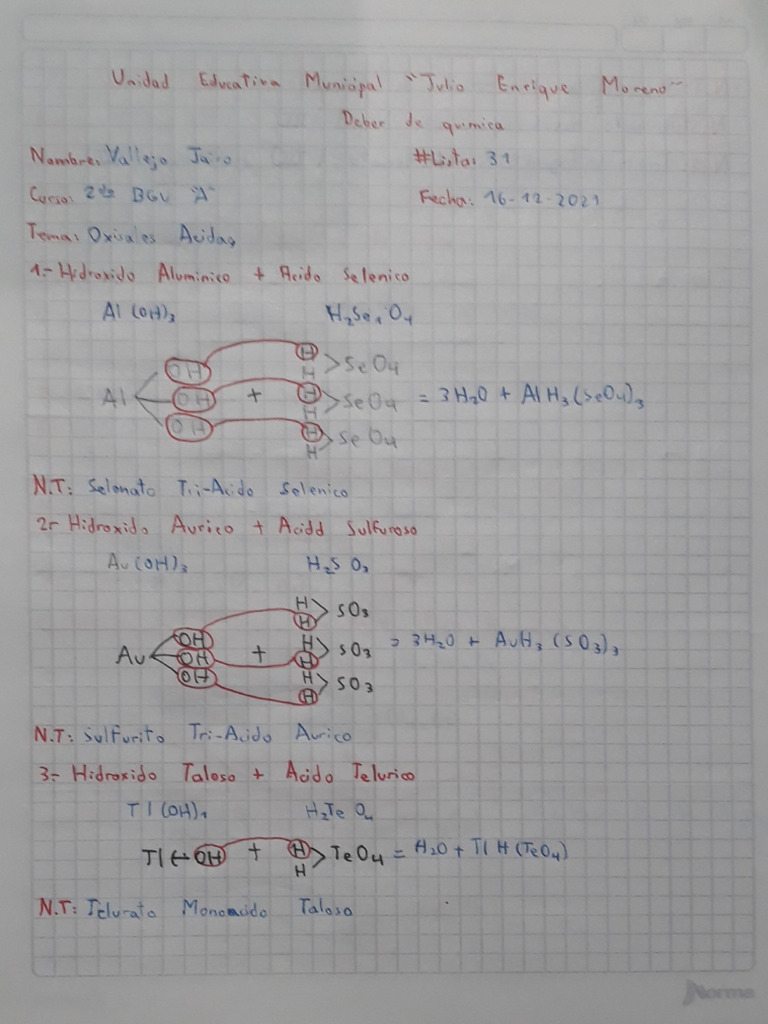 Unidad Educativa Municipal "Julio Enrique Moreno"
Deber de quimica
Nombre: Vallejo Jairo #Lista: 31
Curso: 2do BGU "A" Fecha: 16-12-2021
Tema: Oxisales Acidas
1.- Hidroxido Aluminico + Acido Selenico
Al (OH)3 H2Se1O4
OH H
H >SeO4
Al OH + H
H >SeO4 = 3H2O + AlH3(SeO4)3
OH H
H >SeO4
N.T: Selenato Tri-Acido Selenico
2.- Hidroxido Aurico + Acidd Sulfuroso
Au(OH)3 H2S O3
OH H
H > SO3
Au OH + H
H > SO3 = 3H2O + AuH3 (SO3)3
OH H
H > SO3
N.T: Sulfurito Tri-Acido Aurico
3.- Hidroxido Taloso + Acido Telurico
Tl(OH)1 H2Te O4
Tl OH + H
H > TeO4 = H2O + Tl H (TeO4)
N.T: Telurato Monoacido Taloso
Norma